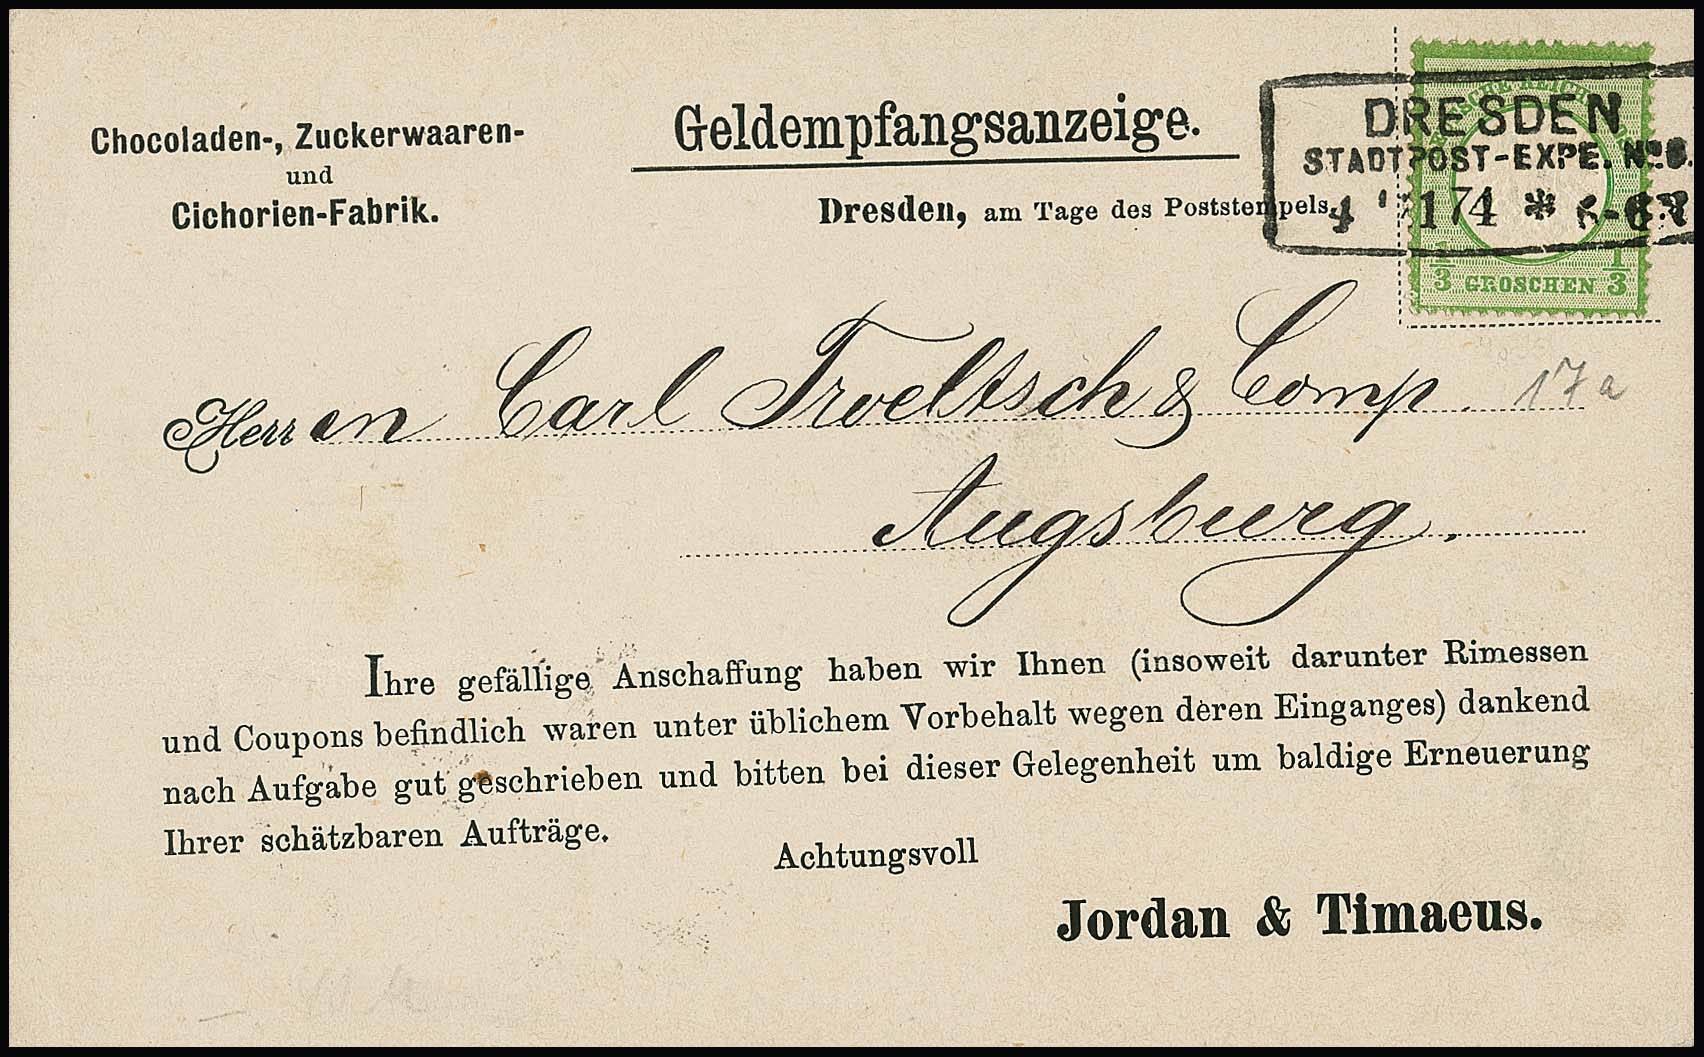 Chocoladen-, Zuckerwaaren-
und
Cichorien-Fabrik.
Geldempfangsanzeige.
Dresden, am Tage des Poststempels.
DRESDEN
STADTPOST-EXPE. No.
1 74 *
1/3 GROSCHEN 1/3
Herren Carl Troeltsch & Comp.
17a
Augsburg.
Ihre gefällige Anschaffung haben wir Ihnen (insoweit darunter Rimessen
und Coupons befindlich waren unter üblichem Vorbehalt wegen deren Einganges) dankend
nach Aufgabe gut geschrieben und bitten bei dieser Gelegenheit um baldige Erneuerung
Ihrer schätzbaren Aufträge.
Achtungsvoll
Jordan & Timaeus.